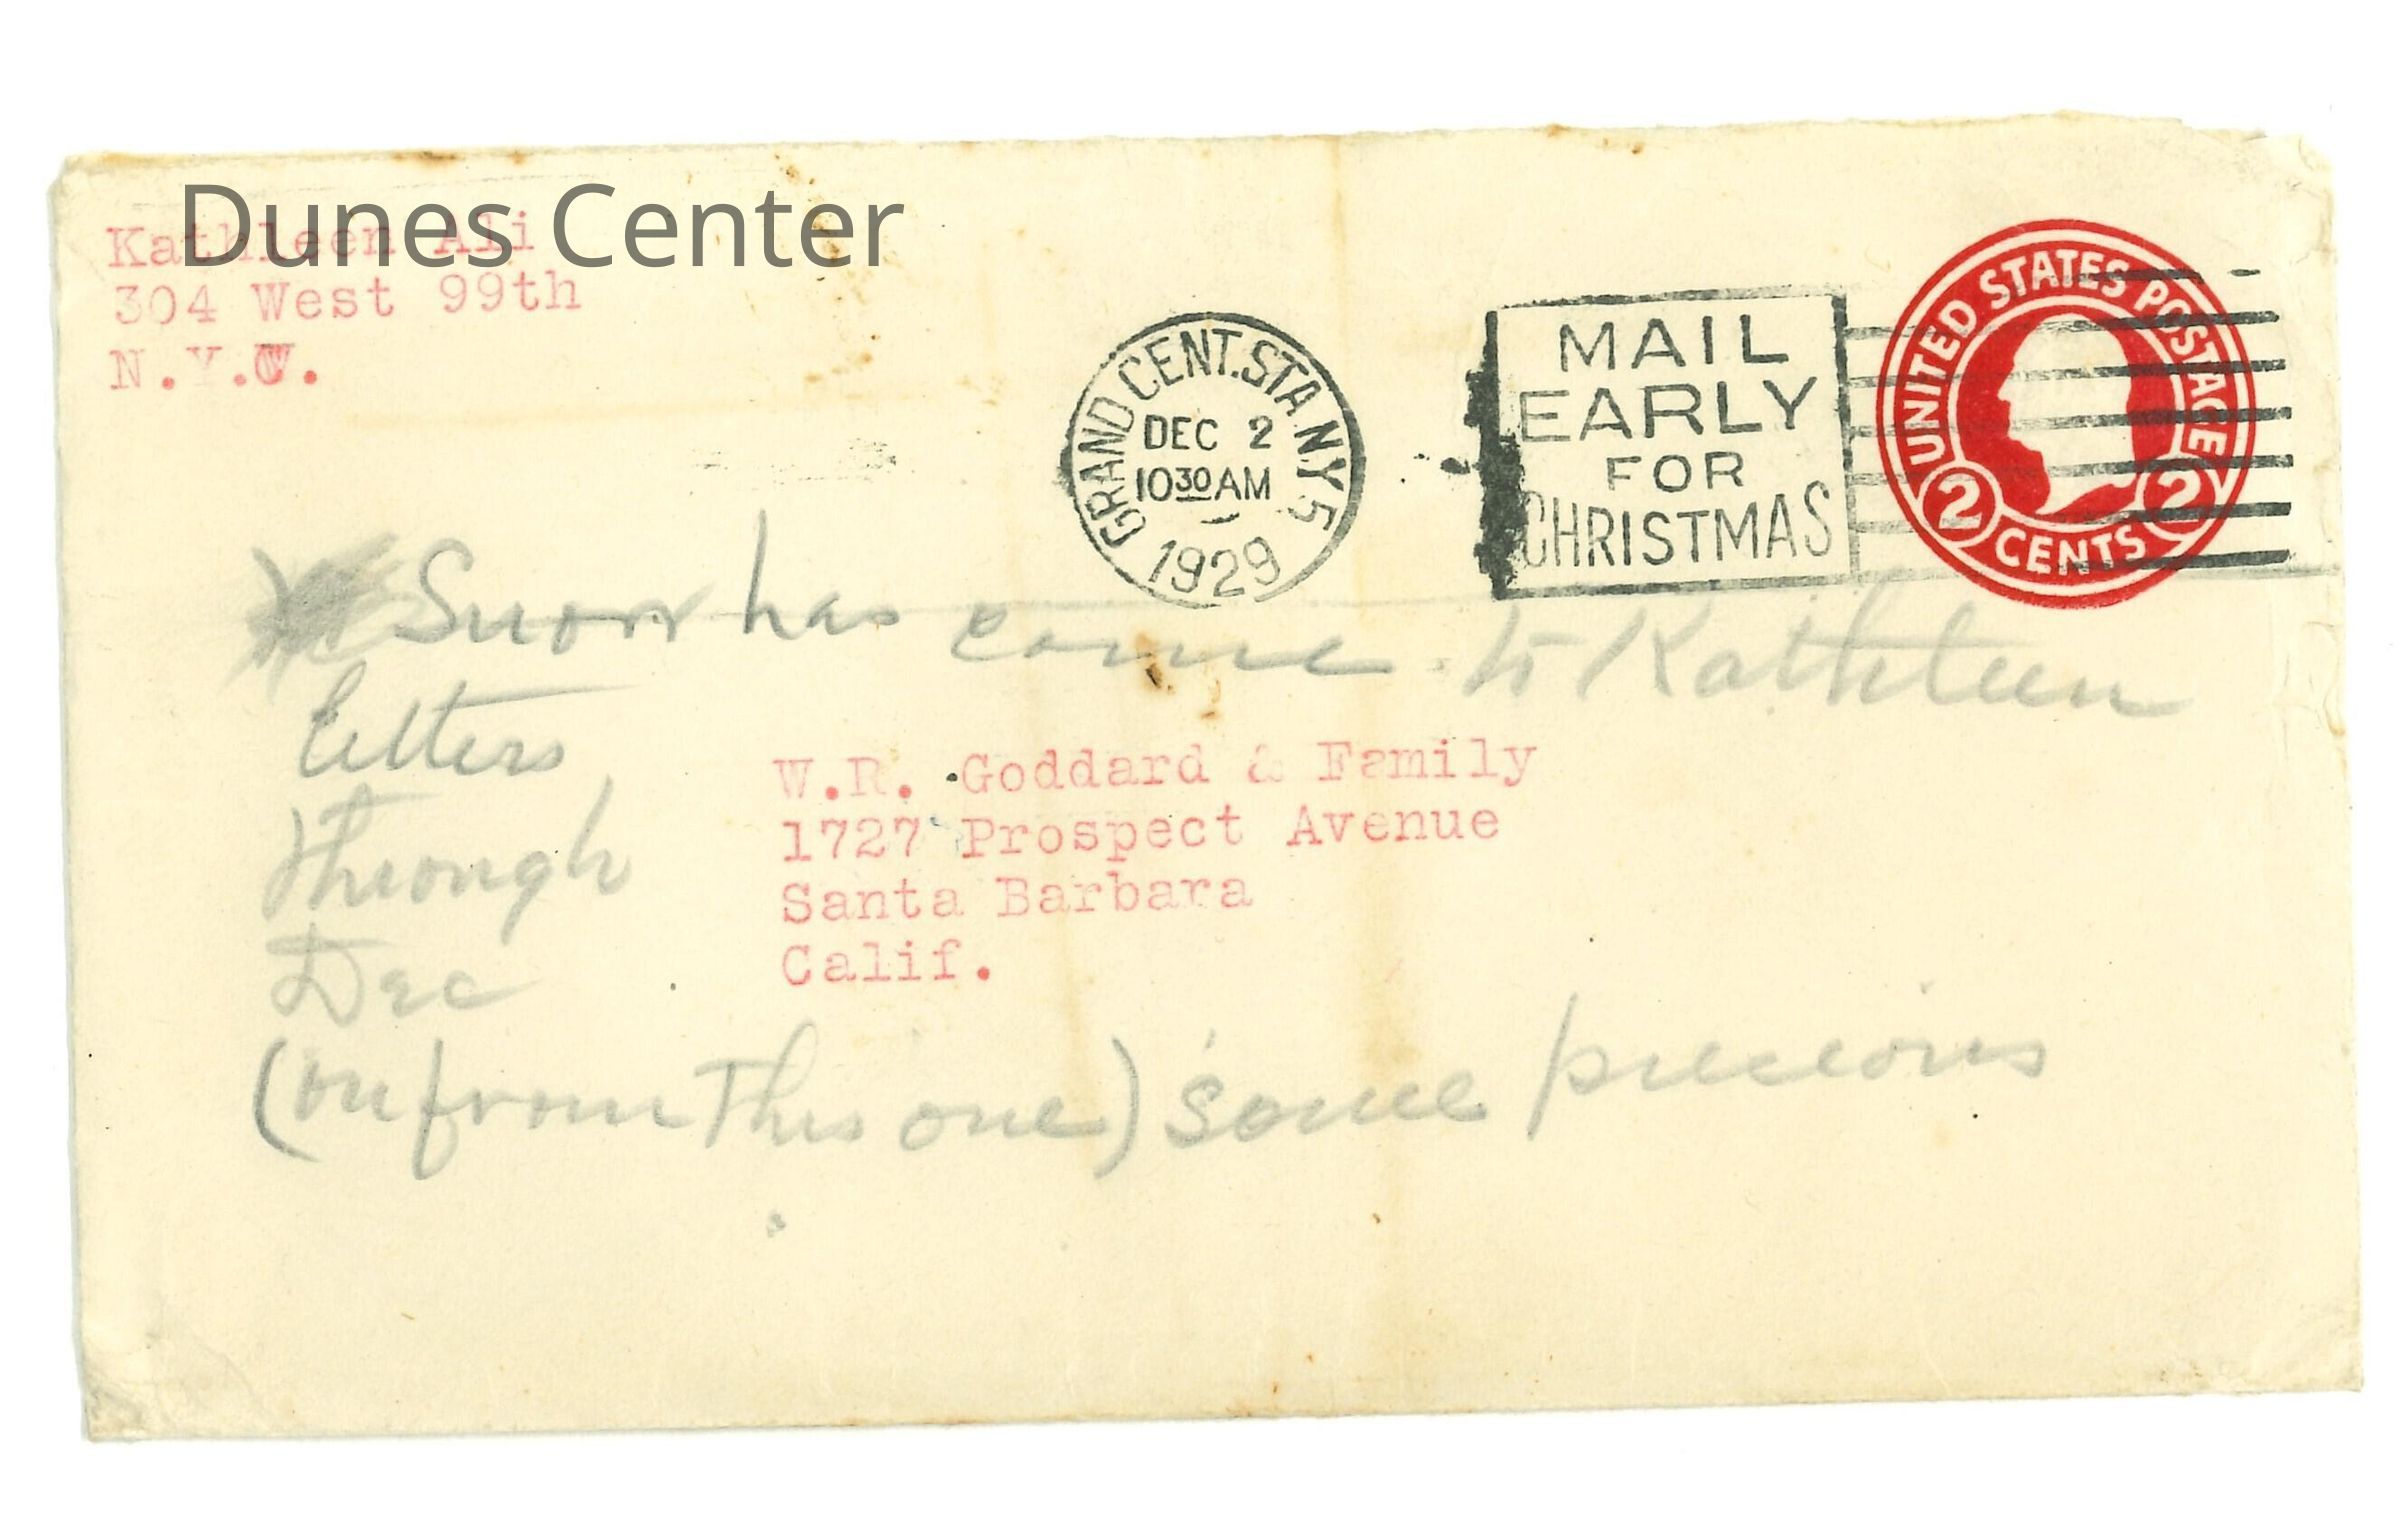 Dunes Center
Kathleen Ali
304 West 99th
N.Y.C.
GRAND CENT. STA. N.Y. 5
DEC 2
10 30 AM
1929
MAIL
EARLY
FOR
CHRISTMAS
UNITED STATES POSTAGE
2 CENTS 2
Snow has come to Kathleen
Letters
through
Dec
(on from this one) some precious
W.R. Goddard & Family
1727 Prospect Avenue
Santa Barbara
Calif.